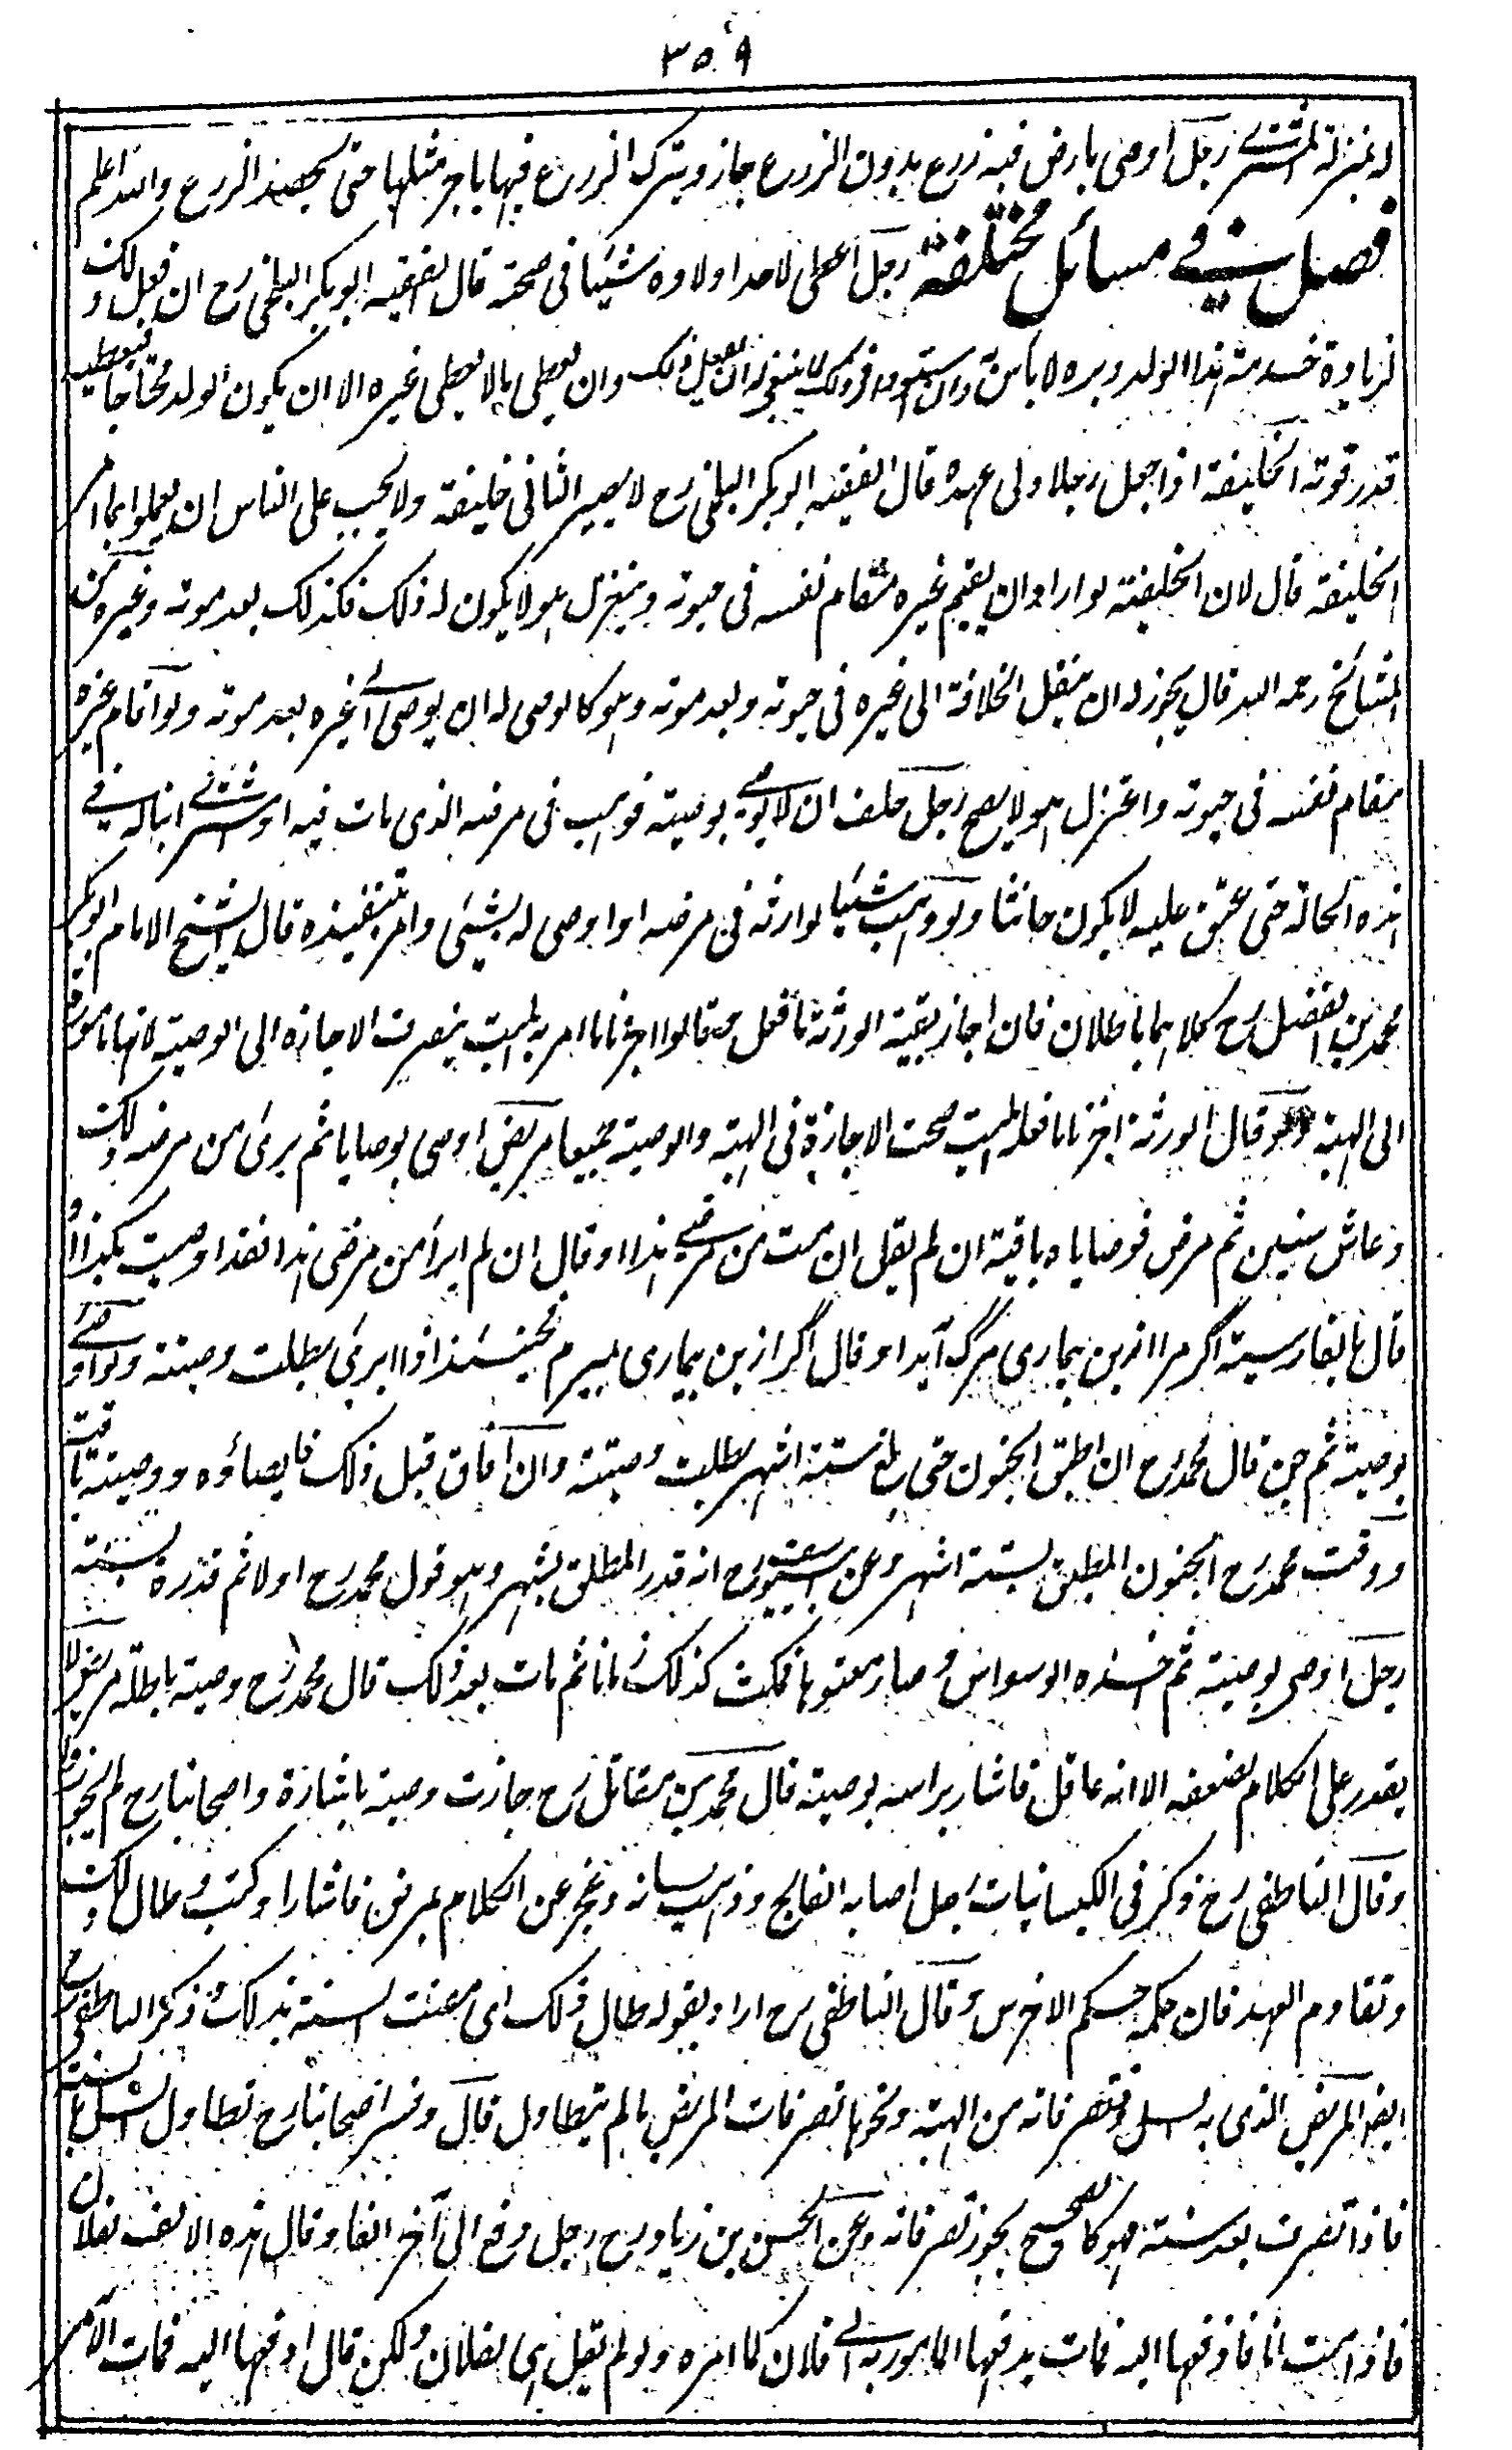 ٣٥٩
له بمنزلة المشترى رجل اوصى بارض فيه زرع بدون الزرع جاز ويترك الزرع فيها باجر مثلها حتى يحصد الزرع والله اعلم
فصل في مسائل مختلفة رجل اعطى لاحد اولاده شيئا فى صحته قال الفقيه ابوبكر البلخى رح ان فعل ذلك
لزيادة خدمة هذا الولد وبره لا باس به وان استووا فى ذلك لا ينبغى له ان يفعل ذلك وان يعطى ما لا يعطى غيره الا ان يكون الولد محتاجا فيعطيه
قدر قوته الخليفة اذا جعل رجلا ولى عهده قال الفقيه ابوبكر البلخى رح لا يصير الثانى خليفة ولا يجب على الناس ان يعملوا بما امر
الخليفة قال لان الخليفة لو اراد ان يقيم غيره مقام نفسه فى حيوته وينعزل هو لا يكون له ذلك فكذلك بعد موته وغيره من
المشائخ رحمه الله قال يجوز له ان ينقل الخلافة الى غيره فى حيوته وبعد موته وهو كالوصى له ان يوصى الى غيره بعد موته ولو اقام غيره
مقام نفسه فى حيوته واعتزل هو لا يصح رجل حلف ان لا يوصى بوصية فوهب فى مرضه الذى مات فيه او اشترى اباه في
هذه الحالة حتى عتق عليه لا يكون حانثا ولو وهب شيئا لوارثه فى مرضه او اوصى له بشيئ وامر بتنفيذه قال الشيخ الامام ابوبكر
محمد بن الفضل رح كلاهما باطلان فان اجاز بقية الورثة ما فعل وقالوا اجزنا ما امر به الميت ينصرف الاجازة الى الوصية لانها مامورة لا
الى الهبة ولو قال الورثة اجزنا ما فعله الميت صحت الاجازة فى الهبة والوصية جميعا مريض اوصى بوصايا ثم برئ من مرضه ذلك
وعاش سنين ثم مرض فوصاياه باقية ان لم يقل ان مت من مرضى هذا او قال ان لم ابرأ من مرضى هذا فقد اوصيت بكذا او
قال بالفارسية اگر مرا ازين بيمارى مرگ آيد او قال اگر ازين بيمارى بميرم فحينئذ اذا برئ بطلت وصيته ولو اوصى
بوصية ثم جن قال محمد رح ان اطبق الجنون حتى بلغ ستة اشهر بطلت وصيته وان افاق قبل ذلك فايصاؤه ووصيته باقية
ووقت محمد رح الجنون المطبق بستة اشهر وعن ابى يوسف رح انه قدر المطبق بشهر وهو قول محمد رح اولا ثم قدره بسنة
رجل اوصى بوصية ثم اخذه الوسواس وصار معتوها فمكث كذلك زمانا ثم مات بعد ذلك قال محمد رح وصيته باطلة مريض لا
يقدر على الكلام لضعفه الا انه عاقل فاشار براسه بوصية قال محمد بن مقاتل رح جازت وصيته باشارة واصحابنا رح لم يجوزوا
وقال الناطفى رح ذكر فى الكيسانيات رجل اصابه الفالج وذهب لسانه وعجز عن الكلام بمرض فاشار او كتب وطال ذلك
وتقادم العهد فان حكمه حكم الاخرس وقال الناطفى رح اراد بقوله طال ذلك اى مضت السنة بذلك ذكر الناطفى رح
ايضا المريض الذى به السل فتصرفاته من الهبة ونحوها تصرفات المريض ما لم يتطاول قال وفسر اصحابنا رح تطاول السل بالسنة
فاذا تصرف بعد سنة فهو كالصحيح يجوز تصرفاته وعن الحسن بن زياد رح رجل دفع الى آخر الفا وقال هذه الالف لفلان
فاذا مت انا فادفعها اليه فمات يدفعها المامور به الى فلان كما امره ولو لم يقل هى لفلان ولكن قال ادفعها اليه فمات الآمر